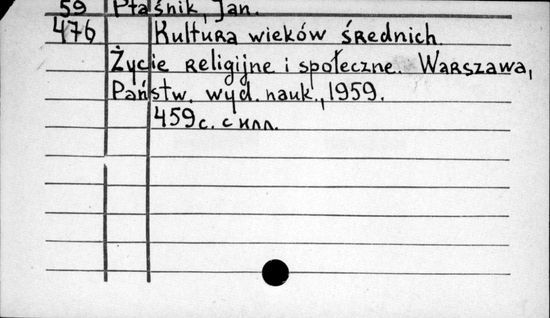 59 Ptaśnik, Jan.
476 Kultura wieków średnich
Życie religijne i społeczne. Warszawa,
Państw. wyd. nauk., 1959.
459 с. с илл.